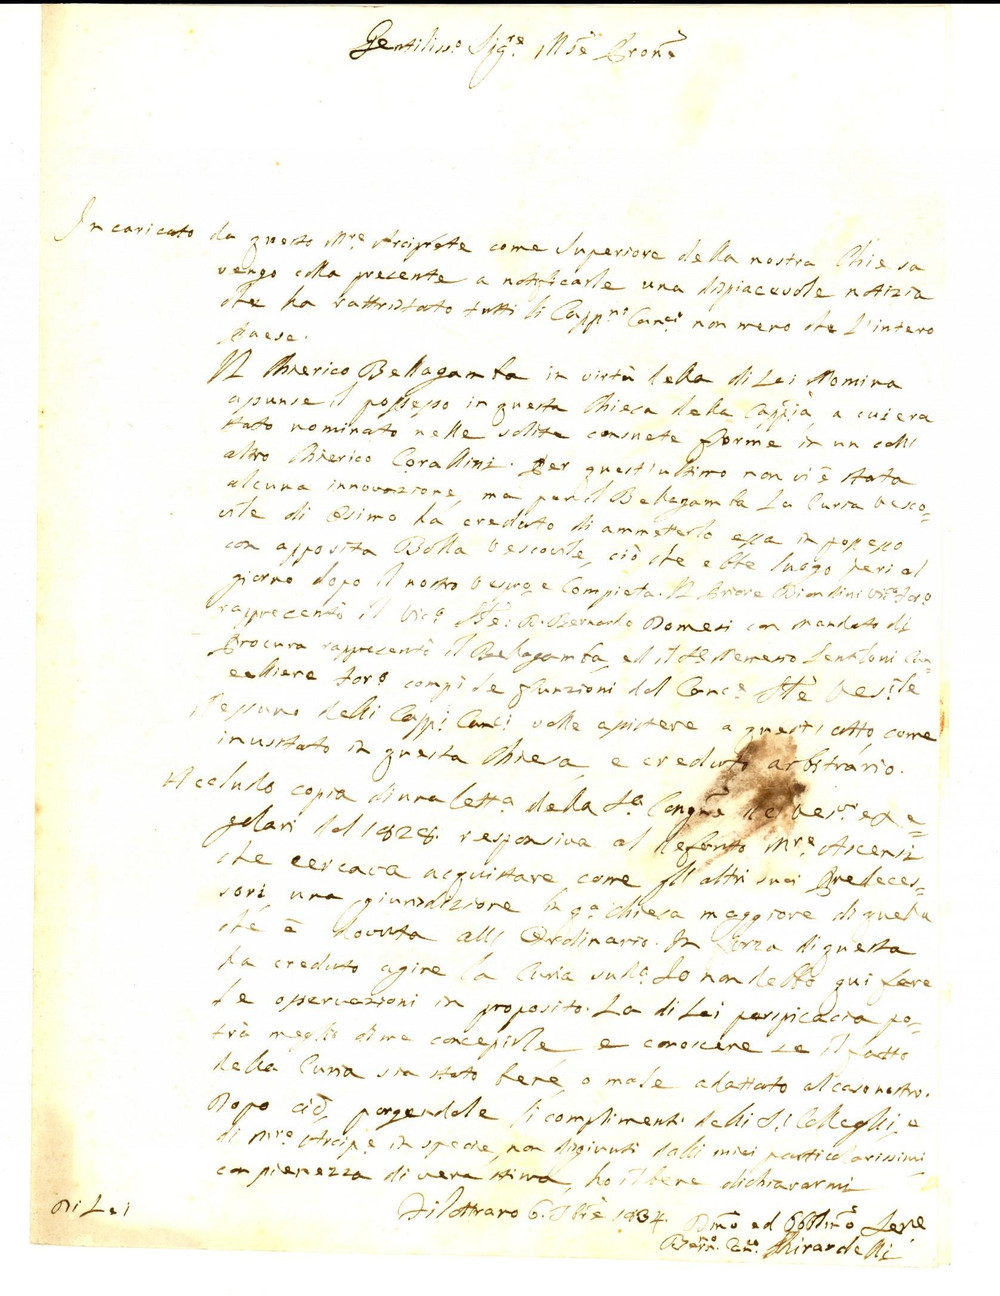 Gentiliss.o Sig.re Mse Prone
Incaricato da questo Mre Arciprete come Superiore della nostra Chiesa
vengo colla presente a notificarle una dispiacevole notizia
che ha rattristato tutti li Capp.ni Can.ci non meno che l'intero
Paese.
Il Chierico Bellagamba in virtù della di Lei Nomina
assunse il possesso in questa Chiesa della Capp.ia, a cui era
stato nominato nelle solite consuete forme in un coll'
altro Chierico Corallini. Per quest'ultimo non vi è stata
alcuna innovazione, ma per il Bellagamba La Curia Vesco-
vile di Osimo ha creduto di ammetterlo essa in possesso
con apposita Bolla Vescovile, ciò che ebbe luogo jeri al
giorno dopo il nostro Vespro e Compieta. Il Priore Biondini Vic.o For.o
rappresentò il Vic.o D. Bernardo Domesi con mandato di
Procura rappresentò il Bellagamba, ed il Can-
celliere For.o compì le funzioni del Canc.e
Nessuno delli Capp.i Can.ci volle assistere a quest'atto, come
inusitato in questa Chiesa, e creduto arbitrario.
Accludo copia di una lett.a della S.a Cong.ne de Ves.vi e Re-
golari del 1828. responsiva al defonto Mre Ascensi
che cercava acquistare come gl'altri suoi Predeces-
sori una giurisdizione in q.a chiesa maggiore di quella
che è dovuta all' Ordinario. In forza di questa
ha creduto agire la Curia sud.a Io non debbo qui fare
le osservazioni in proposito. La di Lei perspicacia po-
trà meglio di me concepirle, e conoscere se il fatto
della Curia sia stato bene, o male adattato al caso nostro.
Dopo ciò, porgendole li complimenti delli S.i Colleghi, e
di Mre Arcip.e in specie, non disgiunti dalli miei particolarissimi
con pienezza di vera stima, ho il bene dichiararmi
Di Lei
Filottrano 6. 1834.
Dmo ed Obblmo Serve
Can.co Ghirardelli